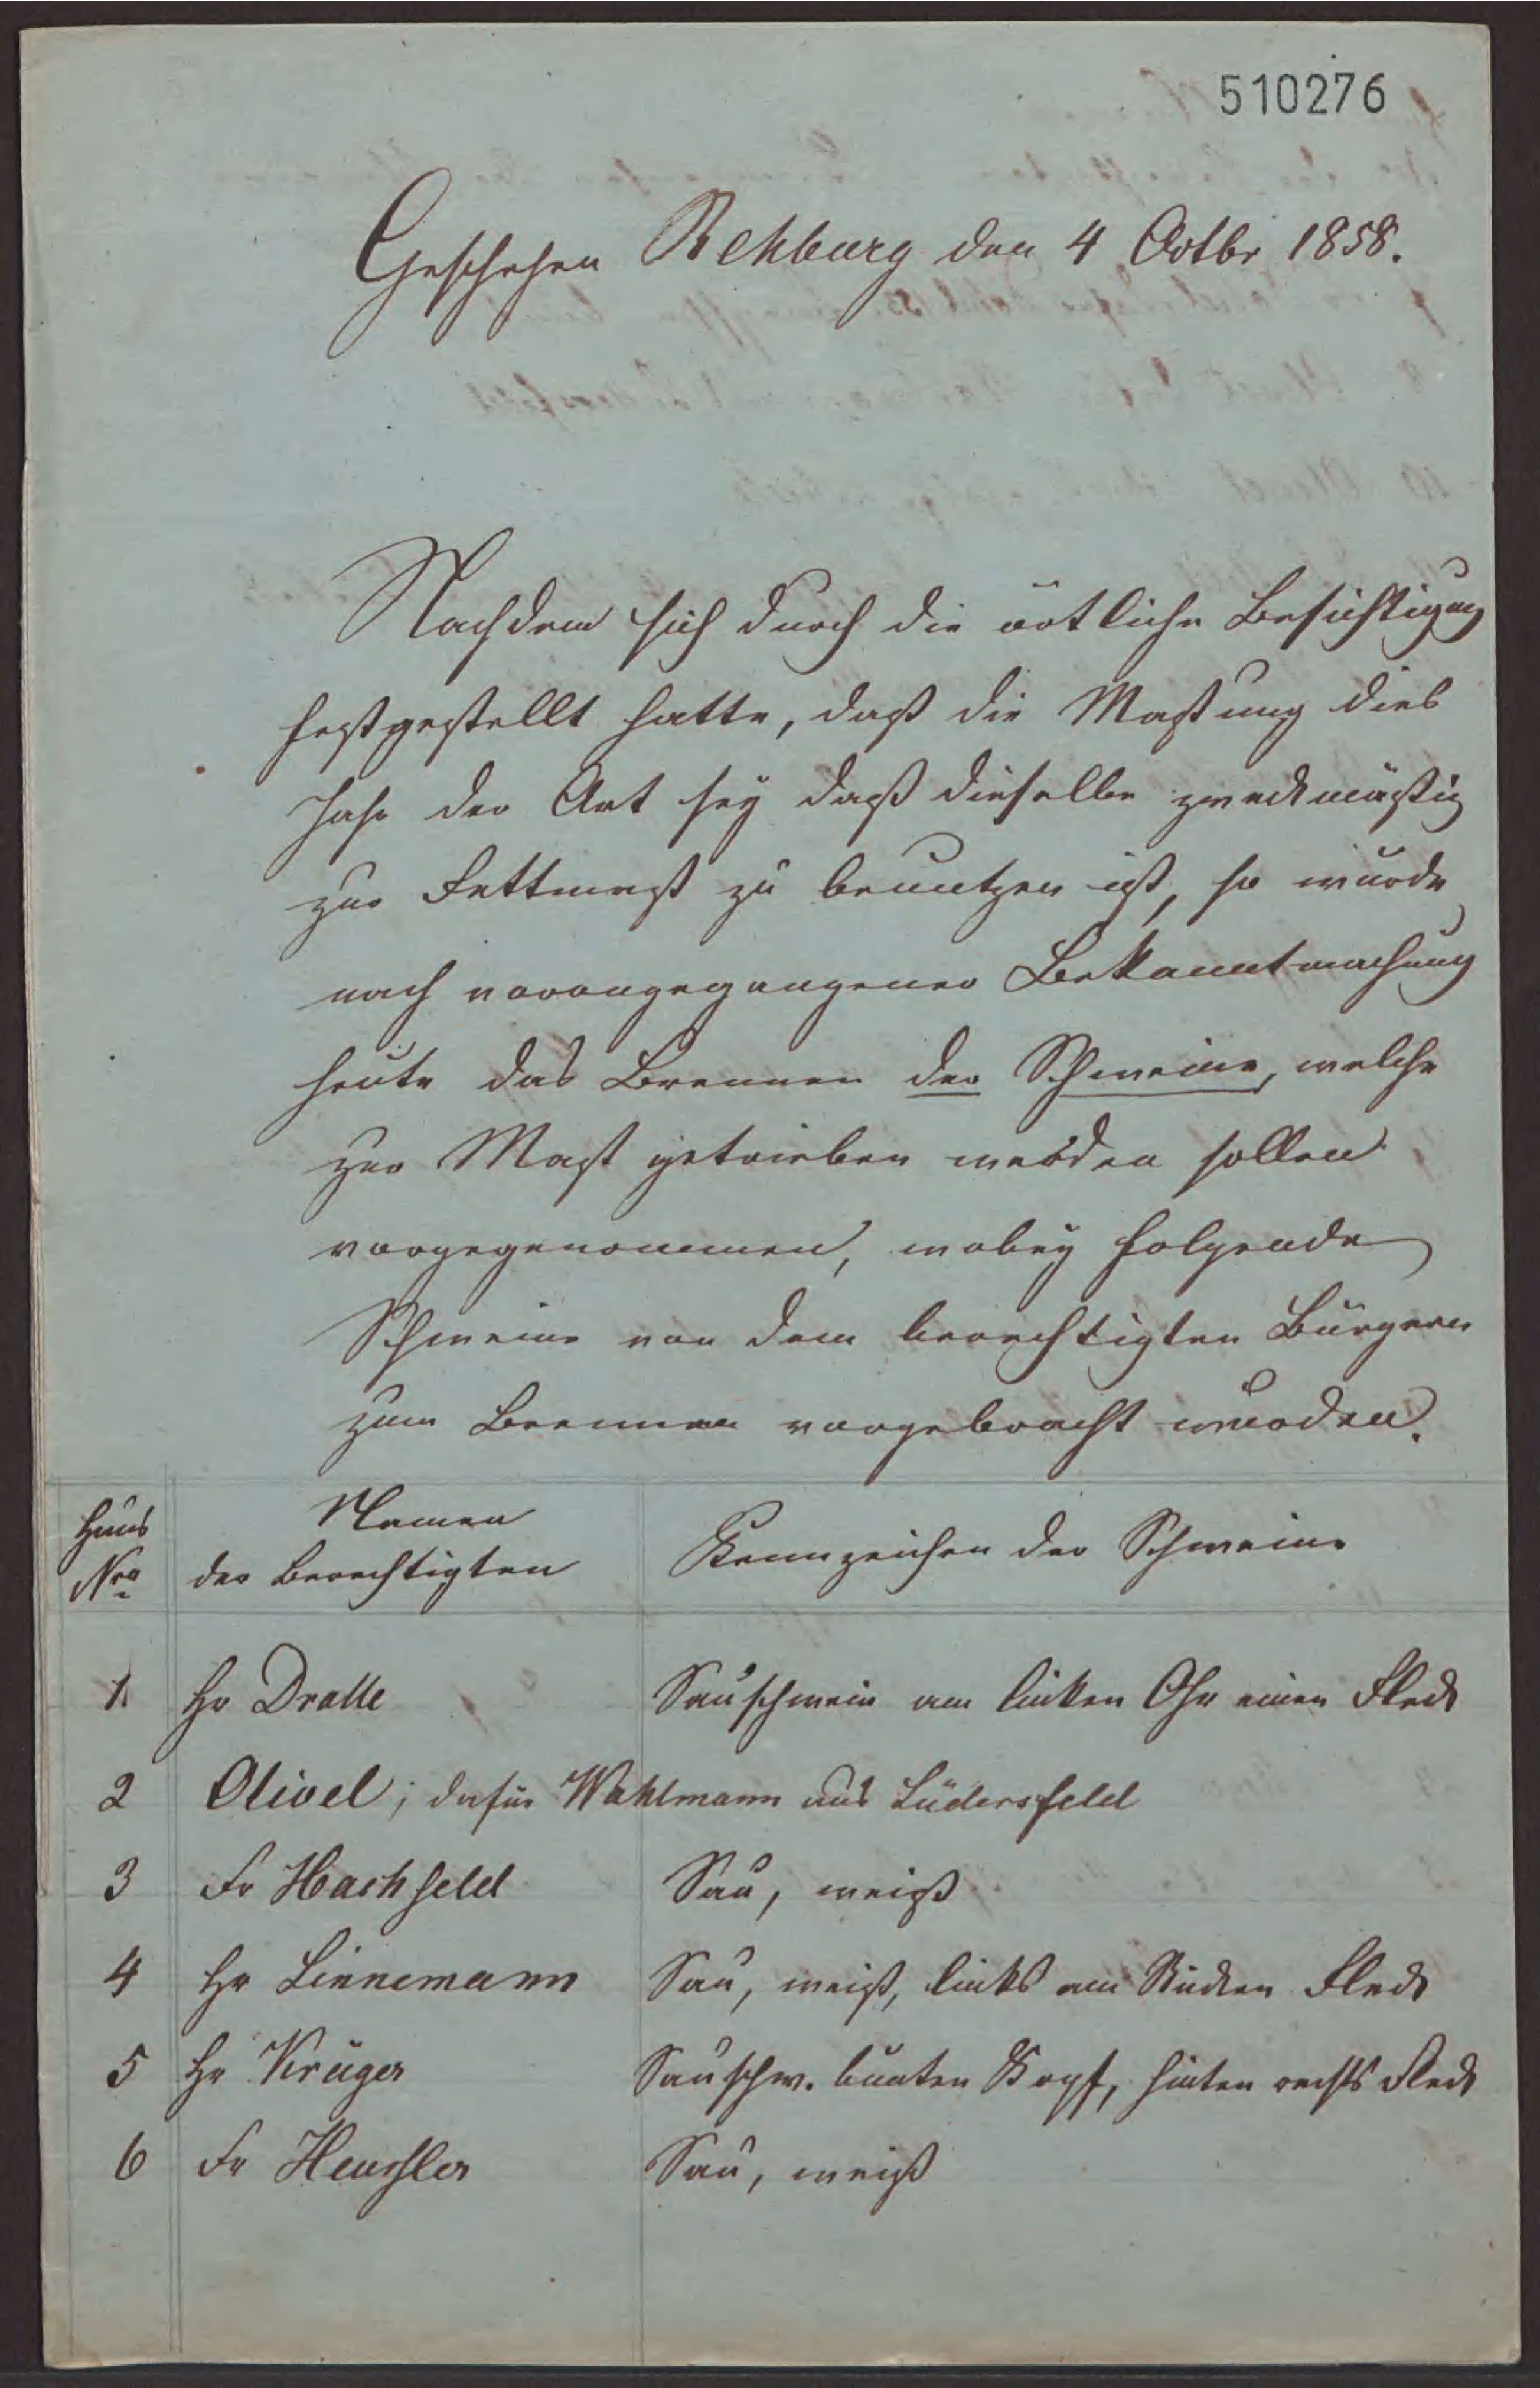 510276
Geschehen Rehburg den 4 Octbr 1858.
Nachdem sich durch die örtliche Besichtigung
festgestellt hatte, daß die Mastung dies
Jahr der Art sey daß dieselbe zweckmäßig
zur Fettmast zu benutzen ist, so wurde
nach vorangegangener Bekanntmachung
heute das Brennen der Schweine, welche
zur Mast getrieben werden sollen
vorgegenommen, wobey folgende
Schweine von dem berechtigten Bürgern
zum Brennen vorgebracht wurden.
Haus Nro Namen der Berechtigten Kennzeichen der Schweine
1 Hr Dralle Sauschwein am linken Ohr einen Fleck
2 Olivel; dafür Wahlmann aus Lüdersfeld
3 Fr Hachfeld Sau, weiß
4 Hr Linnemann Sau, weiß, links am Rücken Fleck
5 Hr Krüger Sauschw. bunten Kopf, hinten rechts Fleck
6 Fr Heussler Sau, weiß